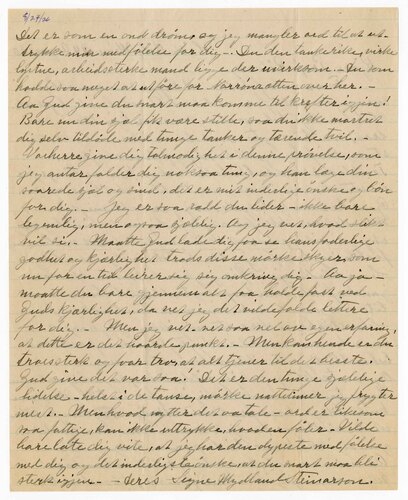 5/24/26
Det er som en ond drøm, og jeg mangler ord til at ut-
trykke min medfølelse for dig. - Du den tankerike, virke
lystne, arbeidssterke mand ligge der uvirksom. - Du som
hadde saa meget at utføre for Norrønaætten over her. -
Aa Gud give du snart maa komme til kræfter igjen!
Bare nu din sjæl fik være stille, saa du ikke martret
dig selv tildøde med tunge tanker og tærende tvil. -
Vorherre give dig talmodighet i denne prøvelse, som
jeg antar falder dig nok saa tung, og han læge din
saarede sjæl og sind, det er mit inderlige ønske og bøn
for dig. - Jeg er saa ræd du lider - ikke bare
legemlig, men ogsaa sjælelig. Og jeg vet, hvad slikt
vil si. - Maatte Gud lade dig faa se hans faderlige
godhet og kjærlighet trods disse mørke skyer, som
nu for en tid leirer sig omkring dig. - Aa ja -
maatte du bare gjennem alt faa holde fast ved
Guds kjærlighet, da vet jeg det vilde falde lettere
for dig. - Men jeg vet, vet saa vel av egen erfaring,
at dette er det saare punkt. - Men kanhende er du
troessterk og for tro, at alt tjener til det beste.
Gud give det var saa! Det er den tunge sjælelige
lidelse - helst i de tause, mørke nattetimer jeg frygter
mest. - Men hvad nytter det at tale - ord er likesom
saa fattige, kan ikke uttrykke, hvad en føler. - Vilde
bare late dig vite, at jeg har den dypeste medfølelse
med dig, og det inderligste ønske, at du snart maa bli
sterk igjen. - Deres Signe Mydland Steinarson.